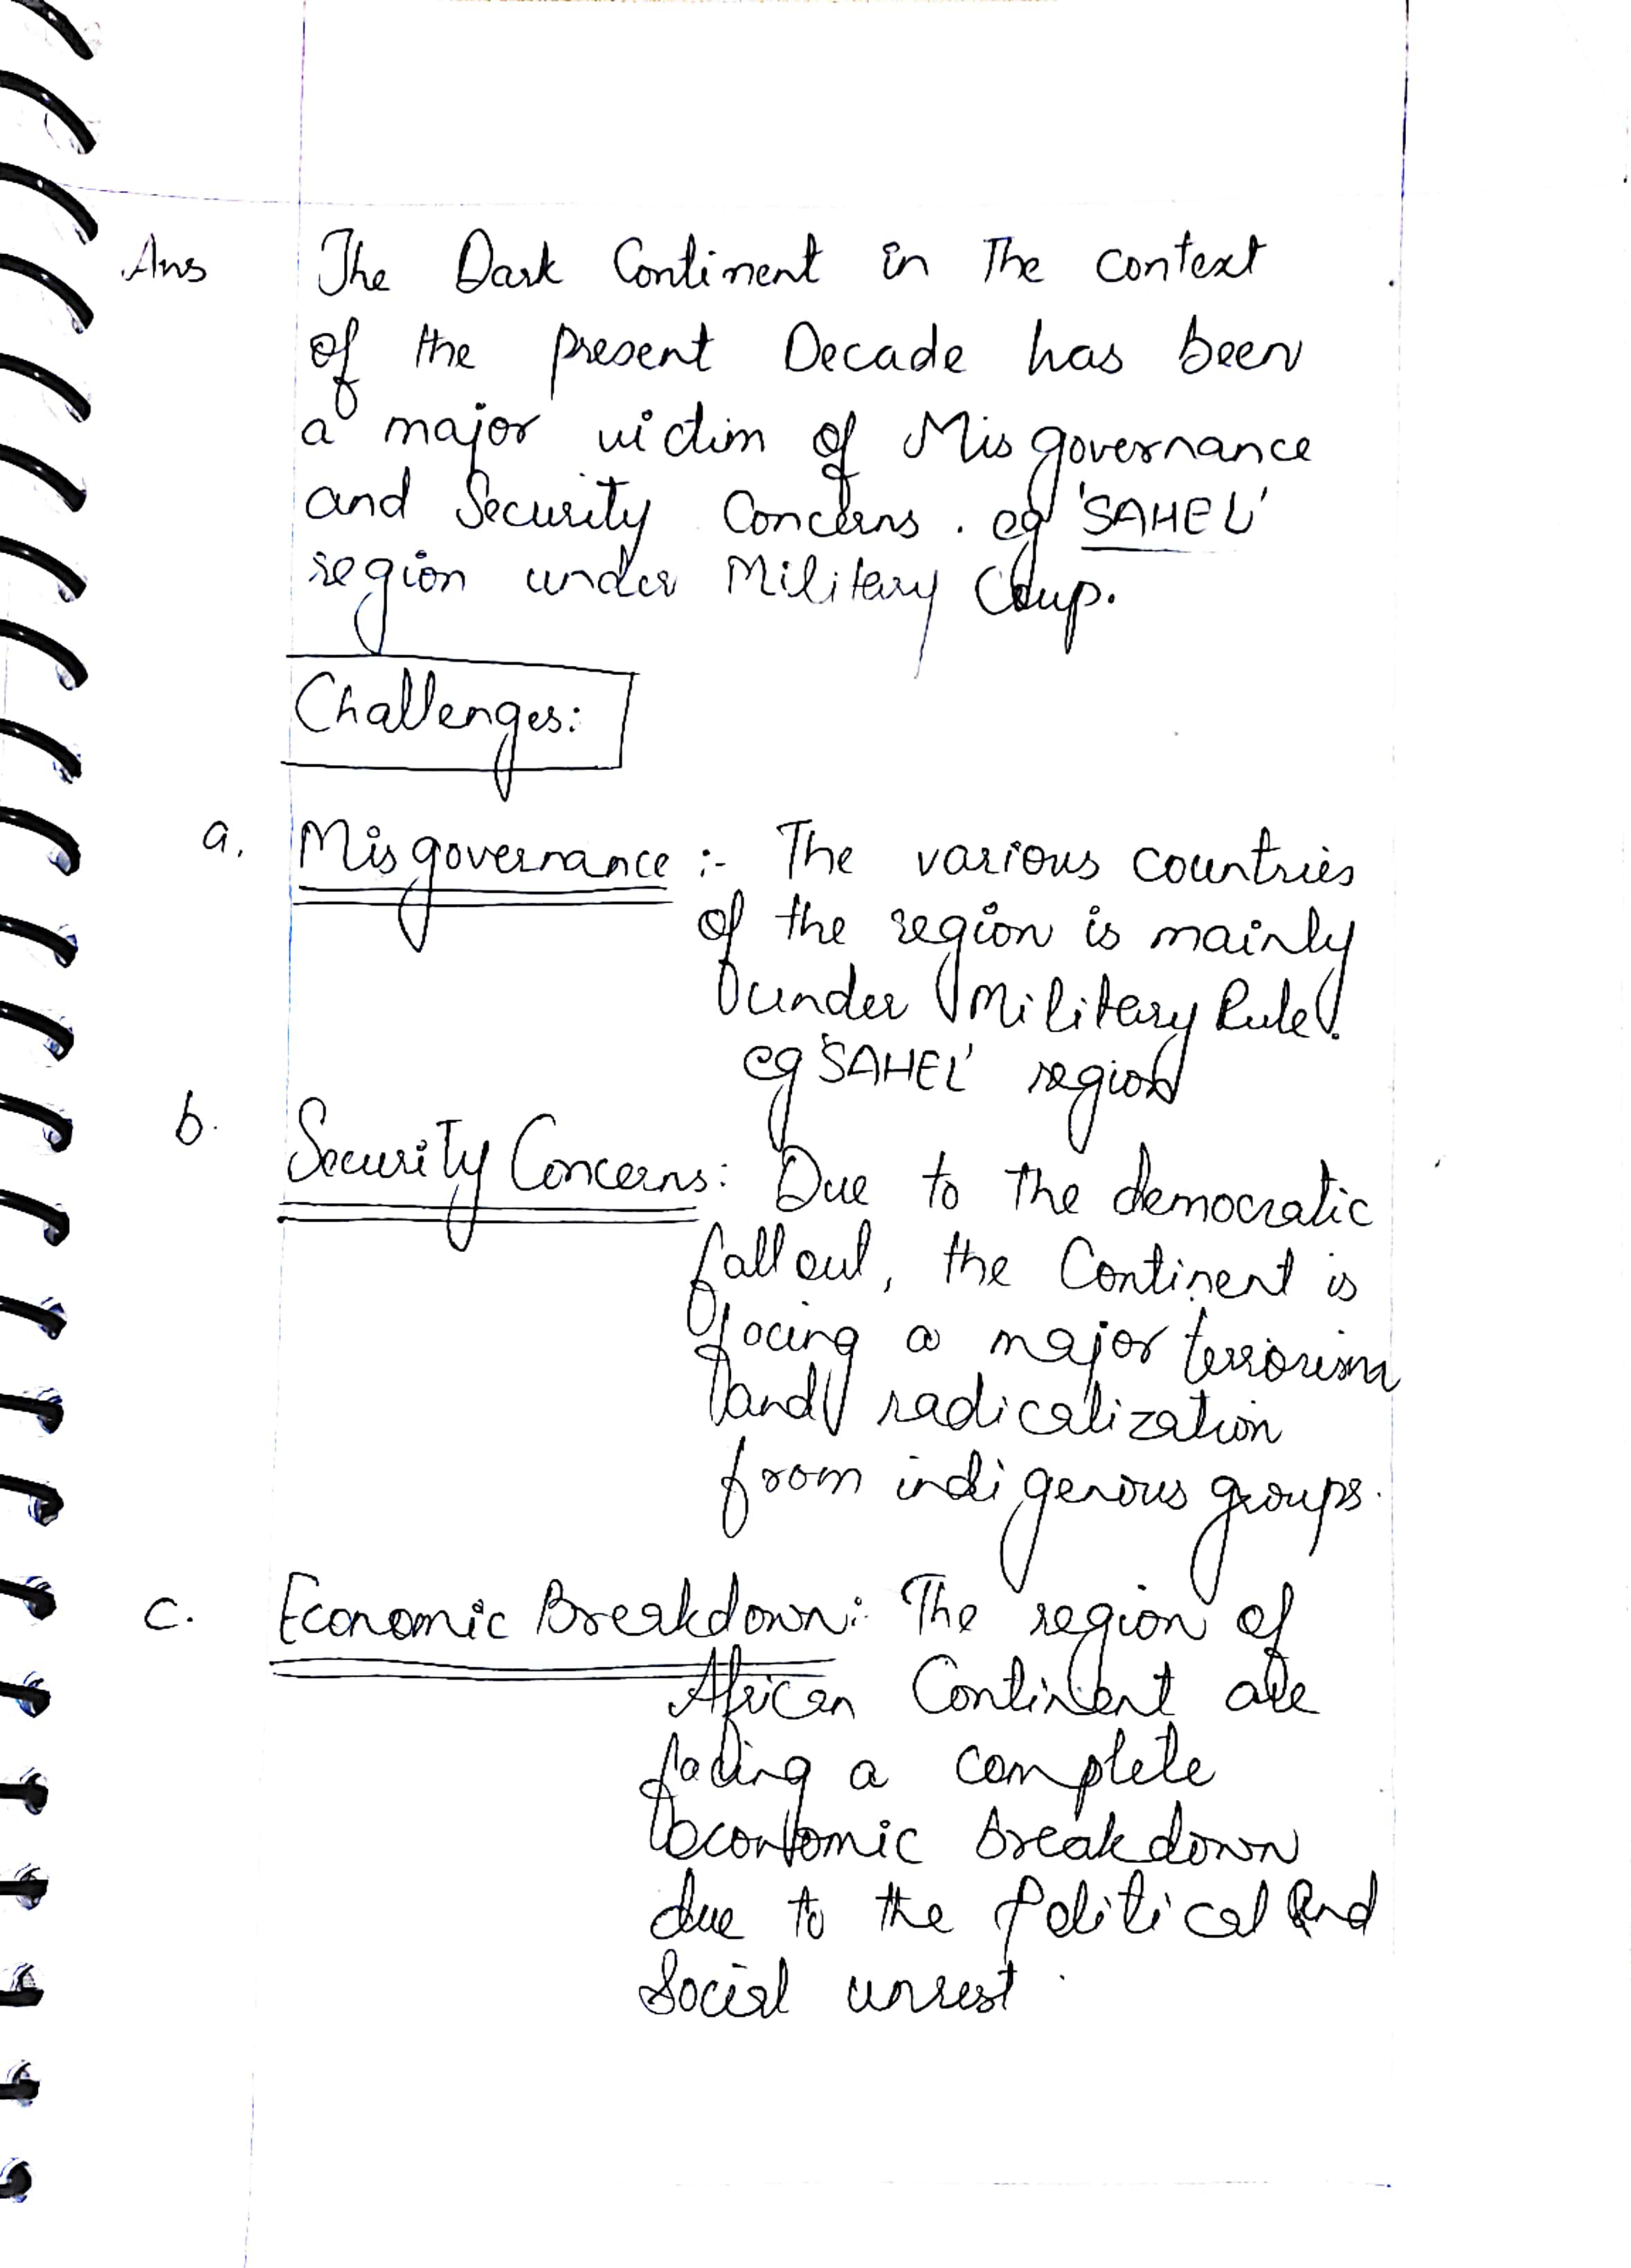 Ans The Dark Continent in The context
of the present Decade has been
a major victim of Misgovernance
and Security Concerns. eg 'SAHEL'
region under Military Coup.
Challenges:
a. Misgovernance :- The various countries
of the region is mainly
under Military Rule.
eg 'SAHEL' region
b. Security Concerns: Due to The democratic
fall out, the Continent is
facing a major terrorism
and radicalization
from indigenous groups.
c. Economic Breakdown: The region of
African Continent are
facing a complete
economic breakdown
due to the Political and
Social unrest.